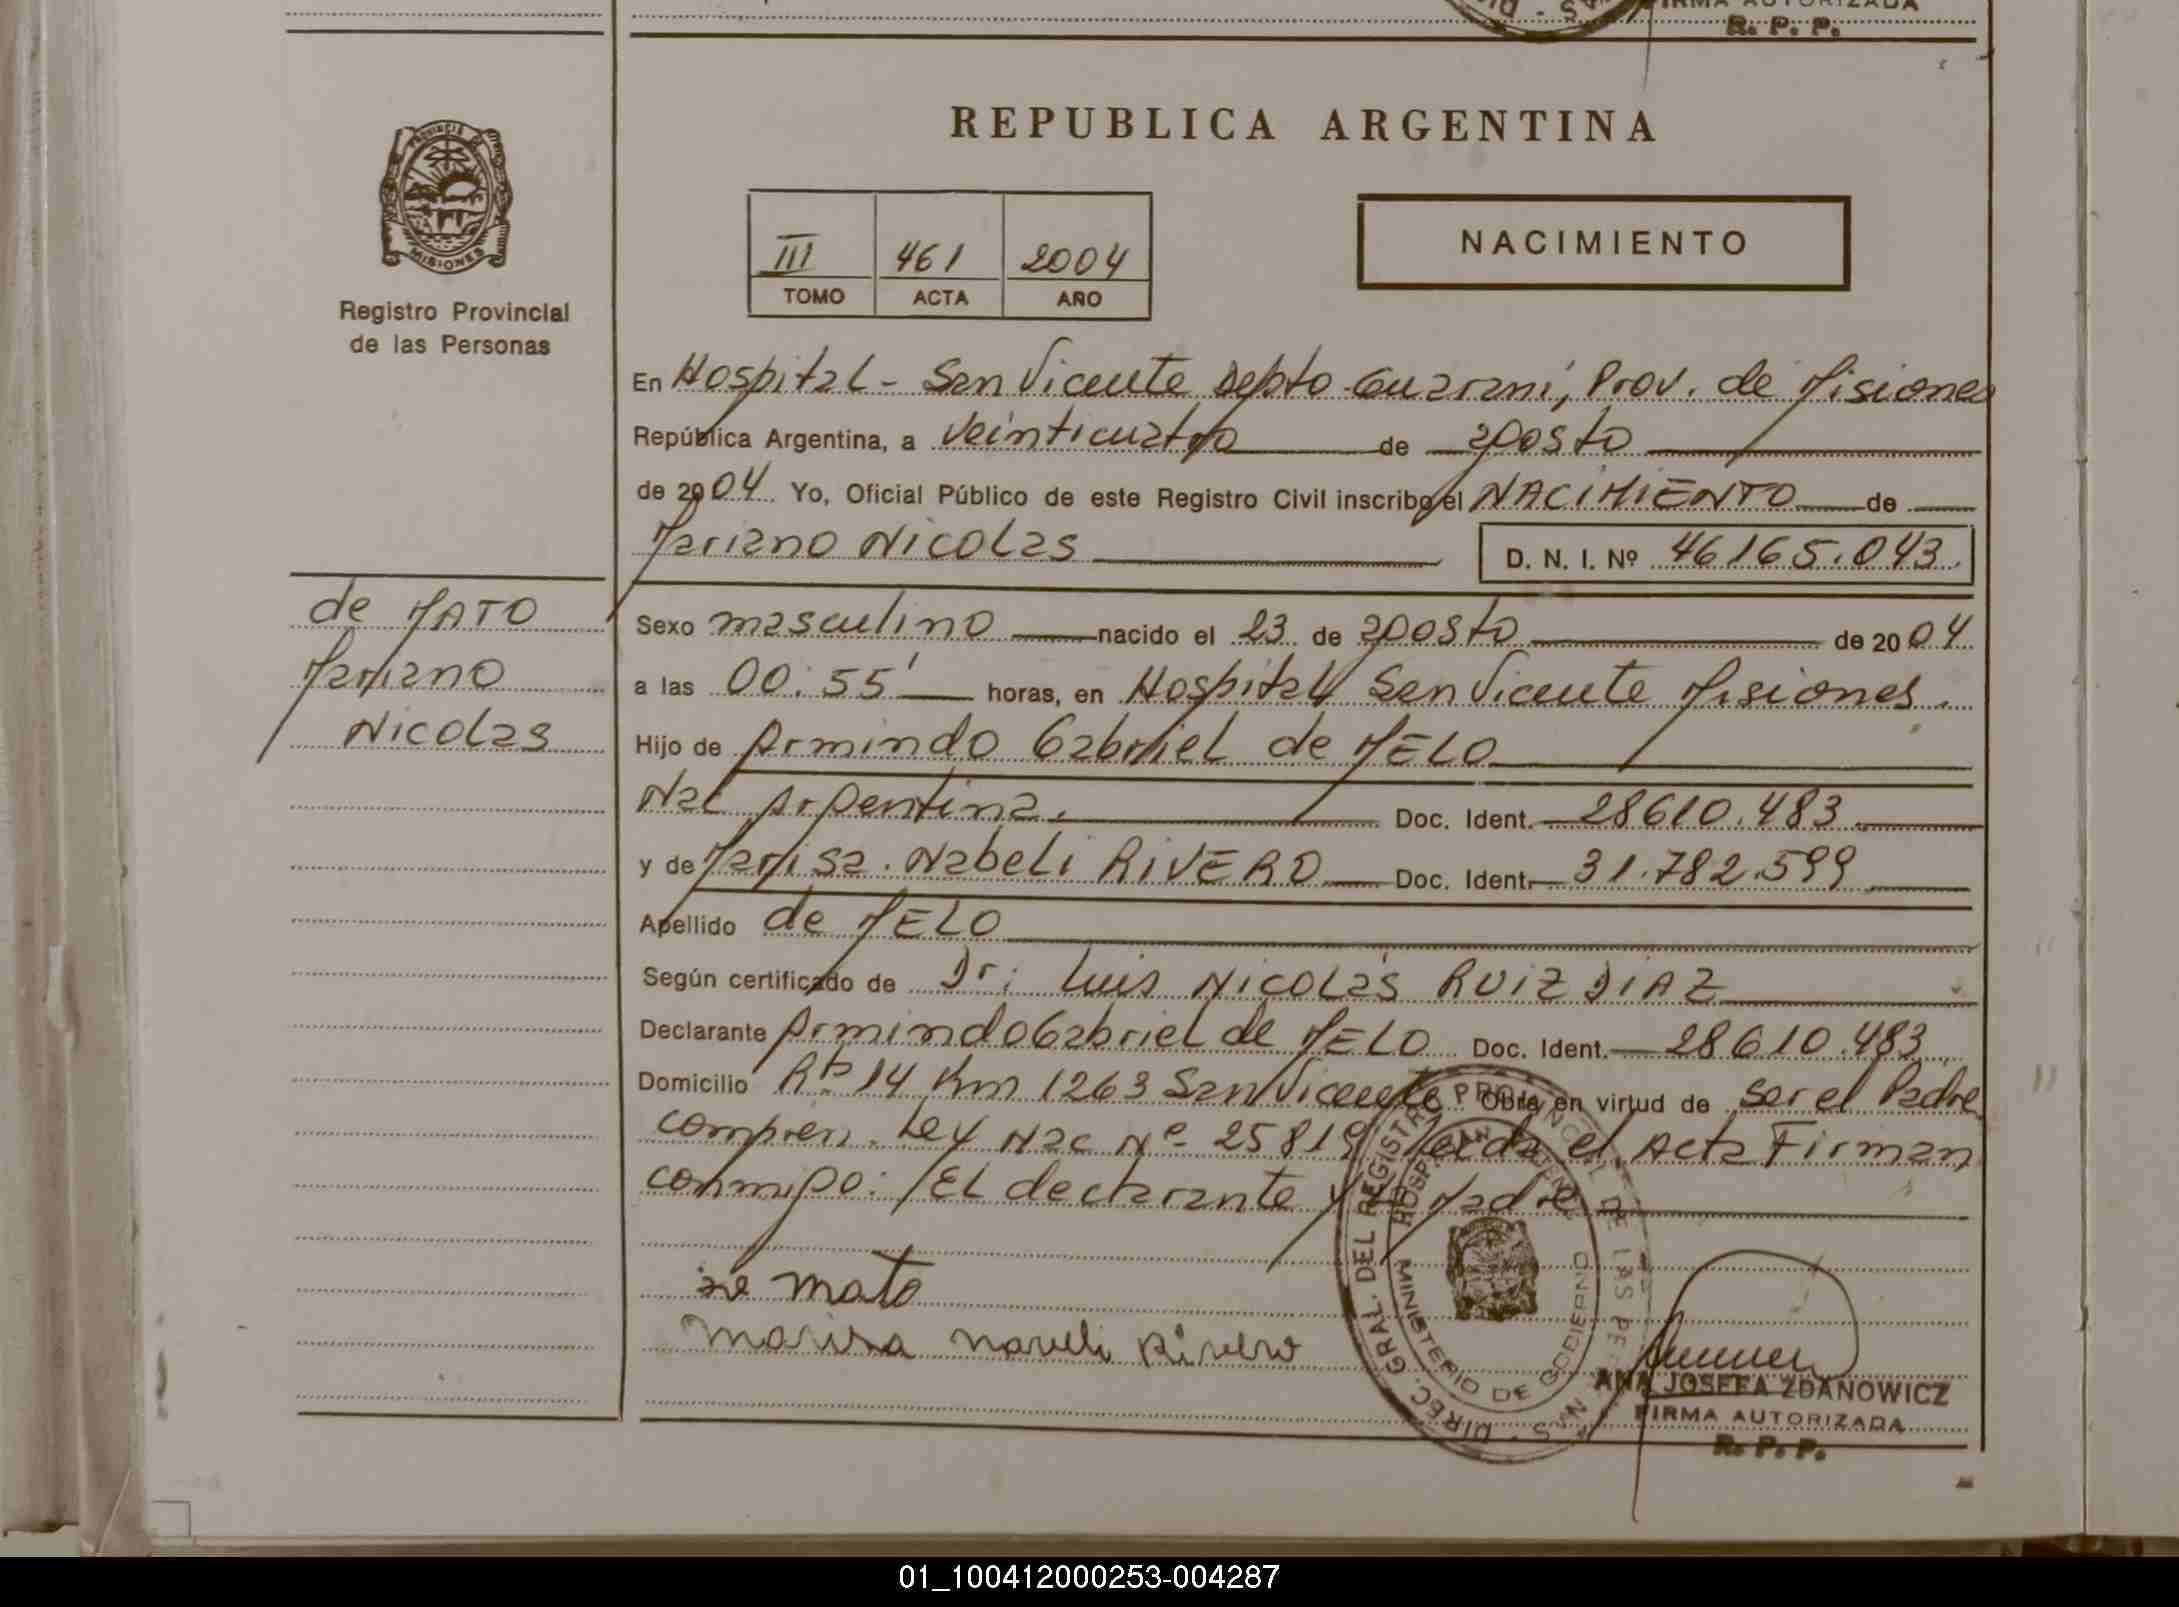 FIRMA AUTORIZADA
R. P. P.
REPUBLICA ARGENTINA
PROVINCIA DE
MISIONES
Registro Provincial
de las Personas
III 461 2004
TOMO ACTA AÑO
NACIMIENTO
En Hospital - San Vicente Depto Guaraní, Prov. de Misiones
República Argentina, a veinticuatro de agosto
de 2004. Yo, Oficial Público de este Registro Civil inscribo el NACIMIENTO de
Mariano Nicolas D. N. I. Nº 46165.043.
de MATO
Mariano
Nicolas
Sexo masculino nacido el 23 de agosto de 2004
a las 00:55' horas, en Hospital San Vicente Misiones.
Hijo de Armindo Gabriel de MELO
Nac Argentina. Doc. Ident. 28610.483
y de Marisa. Nabeli RIVERO Doc. Ident. 31.782.599
Apellido de MELO
Según certificado de Dr: Luis Nicolás RUIZ DIAZ
Declarante Armindo Gabriel de MELO Doc. Ident. 28610.483
Domicilio Rta 14 Km 1263 San Vicente Obra en virtud de ser el Padre
compren. Ley Nac Nº 25819 Leída el Acta Firman
conmigo: El declarante y la Madre
de mato
marisa naveli Rivero
DIREC. GRAL. DEL REGISTRO PROVINCIAL DE LAS PERSONAS
HOSP. SAN VICENTE
MINISTERIO DE GOBIERNO
ANA JOSEFA ZDANOWICZ
FIRMA AUTORIZADA
R. P. P.
01_100412000253-004287